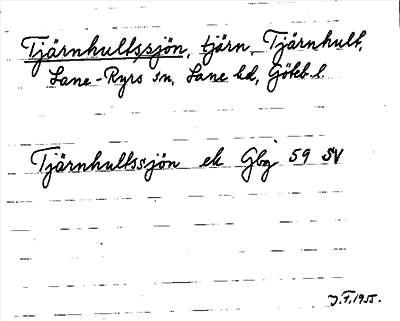 Tjärnhultssjön, tjärn, Tjärnhult,
Lane-Ryrs sn, Lane hd, Göteb l.
Tjärnhultssjön ek Gbg 59 SV
J.F. 1955.